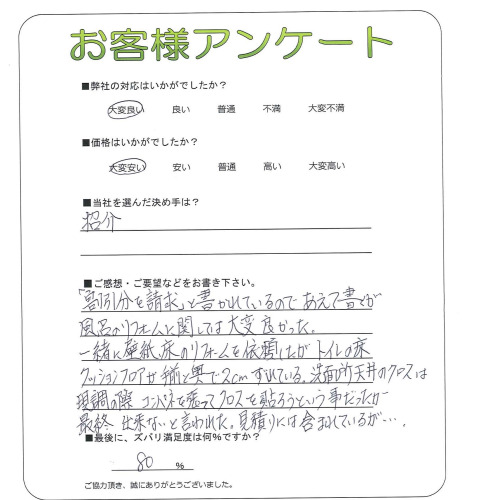 お客様アンケート
■弊社の対応はいかがでしたか？
大変良い 良い 普通 不満 大変不満
■価格はいかがでしたか？
大変安い 安い 普通 高い 大変高い
■当社を選んだ決め手は？
紹介
■ご感想・ご要望などをお書き下さい。
「割引分を請求」と書かれているので あえて書くが
風呂のリフォームに関しては大変良かった。
一緒に壁紙、床のリフォームを依頼したが トイレの床
クッションフロアが 手前と奥で2cmずれている。洗面所天井のクロスは
現調の際 コンパネを張ってクロスを貼ろうという事だったが
最終 出来ないと言われた。見積りには含まれているが…。
■最後に、ズバリ満足度は何％ですか？
80 ％
ご協力頂き、誠にありがとうございました。